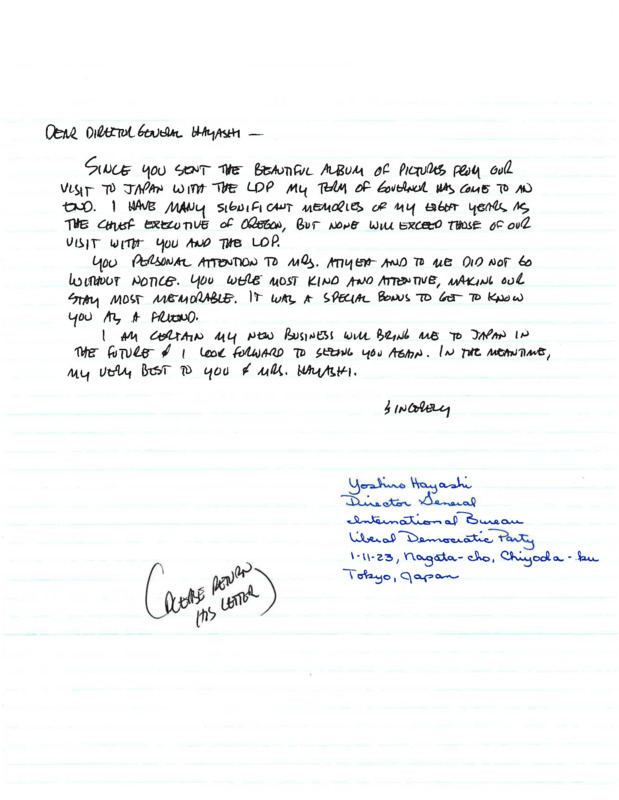 DEAR DIRECTOR GENERAL HAYASHI —
SINCE YOU SENT THE BEAUTIFUL ALBUM OF PICTURES FROM OUR
VISIT TO JAPAN WITH THE LDP MY TERM OF GOVERNOR HAS COME TO AN
END. I HAVE MANY SIGNIFICANT MEMORIES OF MY EIGHT YEARS AS
THE CHIEF EXECUTIVE OF OREGON, BUT NONE WILL EXCEED THOSE OF OUR
VISIT WITH YOU AND THE LDP.
YOU PERSONAL ATTENTION TO MRS. ATIYEH AND TO ME DID NOT GO
WITHOUT NOTICE. YOU WERE MOST KIND AND ATTENTIVE, MAKING OUR
STAY MOST MEMORABLE. IT WAS A SPECIAL BONUS TO GET TO KNOW
YOU AS A FRIEND.
I AM CERTAIN MY NEW BUSINESS WILL BRING ME TO JAPAN IN
THE FUTURE & I LOOK FORWARD TO SEEING YOU AGAIN. IN THE MEANTIME,
MY VERY BEST TO YOU & MRS. HAYASHI.
SINCERELY
Yoshiro Hayashi
Director General
International Bureau
Liberal Democratic Party
1-11-23, Nagata-cho, Chiyoda-ku
Tokyo, Japan
(PLEASE RETURN
HIS LETTER)